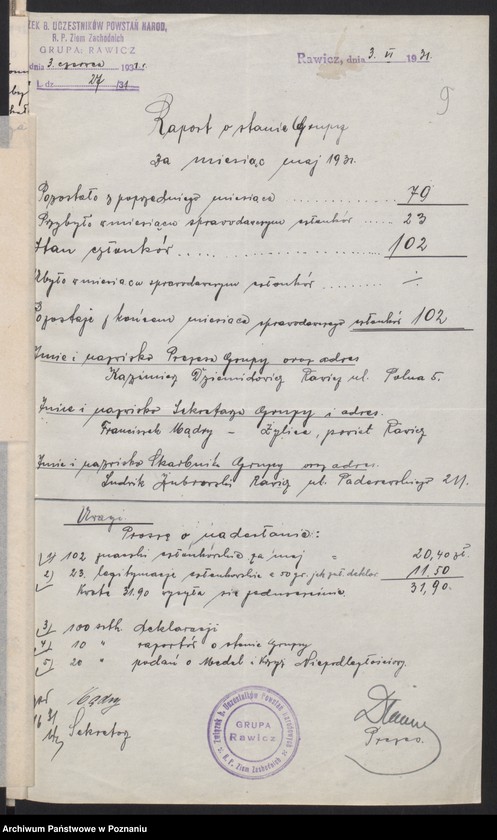 ZEK B. UCZESTNIKÓW POWSTAŃ NAROD.
R. P. Ziem Zachodnich
GRUPA: RAWICZ
dnia 3. czerwca 1931 r.
L. dz. 27/31
Rawicz, dnia 3. VI 1931.
9
Raport o stanie Grupy
za miesiąc maj 1931.
Pozostało z poprzedniego miesiąca 79
Przybyło w miesiącu sprawodawczym członków 23
Stan członków 102
Ubyło w miesiącu sprawodawczym członków ÷
Pozostaje z końcem miesiąca sprawodawczego członków 102
Imię i nazwisko Prezesa Grupy oraz adres
Kazimierz Dziemidowicz Rawicz ul. Polna 5.
Imię i nazwisko Sekretarza Grupy i adres.
Franciszek Mądry – Żylice, powiat Rawicz
Imię i nazwisko Skarbnik Grupy oraz adres.
Ludwik Żubrowski Rawicz ul. Paderewskiego 211.
Uwagi
Proszę o nadesłanie:
1) 102 znaczki członkowskie za maj = 20,40 zł.
2) 23. legitymacje członkowskie a 50 gr. jak zał. deklar. 11.50
Kwota 31.90 wysyła się jednocześnie. 31,90.
3) 100 szt. deklaracji
4) 10 " raportów o stanie Grupy
5) 20 " podań o Medal i Krzyż Niepodległościowy
Mądry
Sekretarz
Prezes.
Związek b. Uczestników Powstań Narodowych
R. P. Ziem Zachodnich
GRUPA
Rawicz
Archiwum Państwowe w Poznaniu